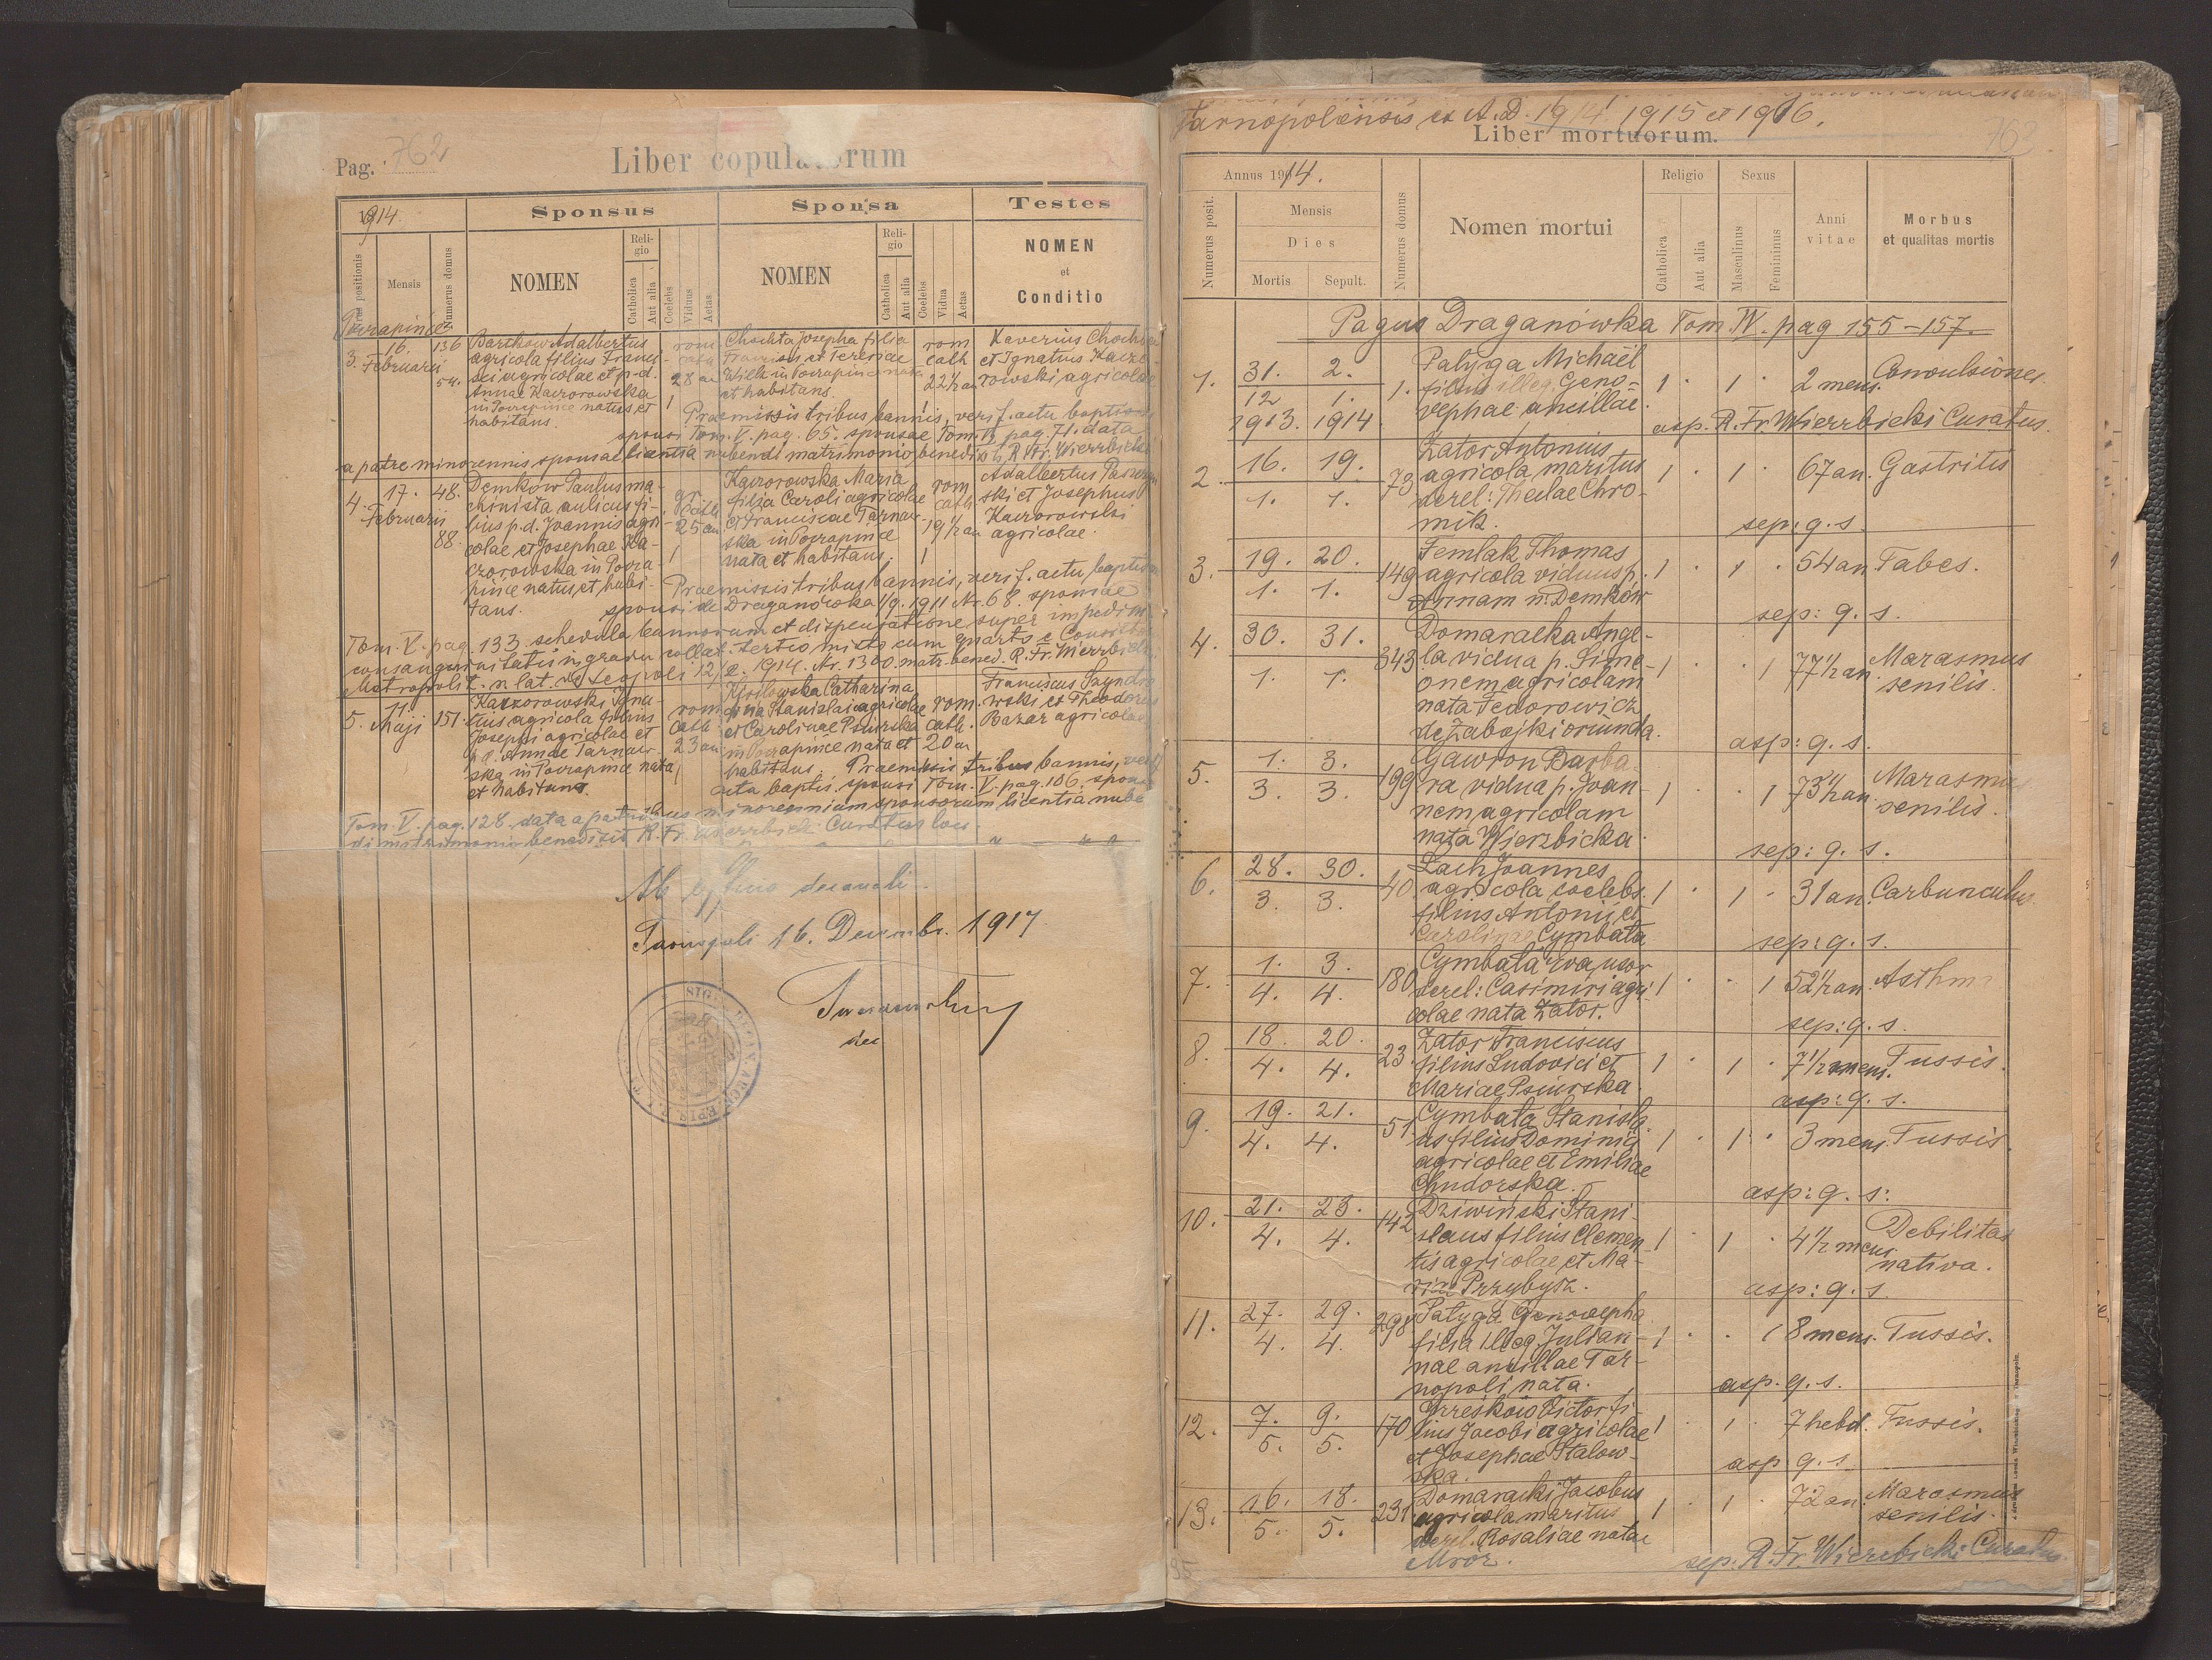 Pag. 762
Liber copulatorum
1914.
Sponsus
Sponsa
Testes
positionis
Mensis
Numerus domus
NOMEN
Religio
Catholica
Aut alia
Coelebs
Viduus
Aetas
NOMEN
Religio
Catholica
Aut alia
Coelebs
Vidua
Aetas
NOMEN
et
Conditio
3. 16. Februarii 136 54.
Bartków Adalbertus
agricola filius Franci-
sci agricolae et p. d.
Annae Kaczorowska
in Poczapińce natus et
habitans.
rom. cath. 28 an 1
Chochta Josepha filia
Francisci et Teresiae
Wilk in Poczapińce nata
et habitans.
rom cath 22 1/2 an 1
Xaverius
et Ignatius Kaczo-
rowski agricolae
Praemissis tribus bannis, verif. actu baptism.
sponsi Tom. V. pag. 65. sponsae Tom. V. pag. 71. data
a patre minorennis sponsae licentia nubendi matrimonio benedixit R. Fr. Wierzbicki
4. 17. Februarii 48. 88.
Demków Paulus ma-
chinista aulicus fi-
lius p. d. Joannis agri-
colae et Josephae Ka-
czorowska in Pocza-
pińce natus et habi-
tans.
gr. cath. 25 an 1
Kaczorowska Maria
filia Caroli agricolae
et Franciscae Tarnaw-
ska in Poczapińce
nata et habitans.
rom cath 19 1/2 an 1
Adalbertus
ski et Josephus
Kaczorowski
agricolae.
Praemissis tribus bannis, verif. actu baptism
sponsi de Draganówka 1/9. 1911 Nr. 68. sponsae
Tom. V. pag. 133. schedula bannorum et dispensatione super impedim.
consanguinitatis in gradu collat. tertio mixto cum quarto e Consist.
Metropolit. r. lat. de Leopoli 12/2. 1914. Nr. 1300. matr. bened. R. Fr. Wierzbicki
5. 11. Maji 151
Kaczorowski Igna-
tius agricola filius
Josephi agricolae et
p. d. Annae Tarnaw-
ska in Poczapińce nata
et habitans.
rom cath 23 an 1
Catharina
filia Stanislai agricolae
et Carolinae Psiurska
in Poczapińce nata et
habitans.
rom. cath. 20 an
Franciscus
wski et Theodorus
Bazar agricolae
Praemissis tribus bannis, verif
acta baptis. sponsi Tom. V. pag. 106. sponsae
Tom. V. pag. 128. data a patribus minorennium sponsorum licentia nuben
di matrimonio benedixit R. Fr. Wierzbicki Curatus loci.
Ab Officio decanali.
Tarnopoli 16. Decembr. 1917
dec
Tarnopolensis ex A. D. 1914 1915 et 1916.
Liber mortuorum.
Annus 1914.
Numerus posit.
Mensis
Dies
Mortis
Sepult.
Numerus domus
Nomen mortui
Religio
Catholica
Aut alia
Sexus
Masculinus
Femininus
Anni vitae
Morbus
et qualitas mortis
Pagus Draganówka Tom. IV. pag 155 – 157.
1. 31. 12 1913. 2. 1. 1914 1.
Patyga Michaël
filius illeg. Geno-
vephae ancillae.
1 1 2 mens. Convulsiones.
asp. R. Fr. Wierzbicki Curatus.
2. 16. 1. 19. 1. 73
Zator Antonius
agricola maritus
derel: Theclae Chro-
mik.
1 1 67 an. Gastritis
sep: q. s.
3. 19. 1. 20. 1. 149
Femlak Thomas
agricola viduus p.
Annam n. Demków
1 1 54 an Tabes.
sep: q. s.
4. 30. 1. 31. 1. 343
Domaracka Ange-
la vidua p. Sime-
onem agricolam
nata Fedorowicz
de Zabojki oriunda.
1 1 77 1/2 an. Marasmus
senilis.
asp: q. s.
5. 1. 3. 3. 3. 199
Gawron Barba-
ra vidua p. Joan-
nem agricolam
nata Wierzbicka.
1 1 73 1/2 an. Marasmus
senilis.
sep: q. s.
6. 28. 3. 30. 3. 40
Lach Joannes
agricola coelebs
filius Antonii et
Carolinae Cymbała
1 1 31 an. Carbunculus
sep: q. s.
7. 1. 4. 3. 4. 180
Cymbała Eva, uxor
derel: Casimiri agri-
colae nata Zator.
1 1 52 1/2 an. Asthma
sep: q. s.
8. 18. 4. 20. 4. 23.
Zator Franciscus
filius Ludovici et
Mariae Psiurska.
1 1 7 1/2 mens. Tussis.
asp: q. s.
9. 19. 4. 21. 4. 51
Cymbała Stanisla-
us filius Dominici
agricolae et Emiliae
Chudorska.
1 1 3 mens. Tussis.
asp: q. s.
10. 21. 4. 23. 4. 142
Dziwiński Stani-
slaus filius Clemen-
tis agricolae et Ma-
riae Przybysz.
1 1 4 1/2 mens Debilitas
nativa.
asp: q. s.
11. 27. 4. 29. 4. 298
Patyga Genovepha
filia illeg. Julian-
nae ancillae Tar-
nopoli nata.
1 1 8 mens. Tussis.
asp. q. s.
12. 7. 5. 9. 5. 170
Grześków Victor fi-
lius Jacobi agricolae
et Josephae Stalow-
ska.
1 1 7 hebd. Tussis.
asp q. s.
13. 16. 5. 18. 5. 231
Domaracki Jacobus
agricola maritus
derel. Rosaliae natae
Mróz.
1 1 72 an. Marasmus
senilis.
sep. R. Fr. Wierzbicki Curatus